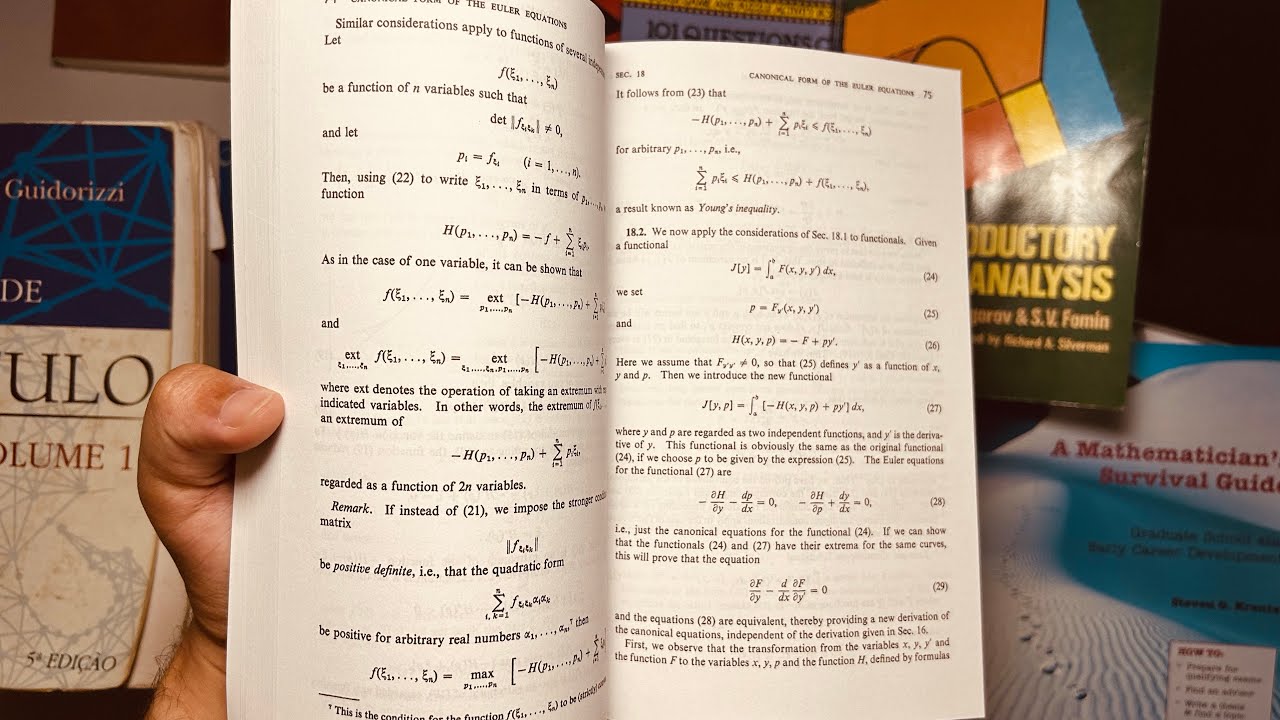 CANONICAL FORM OF THE EULER EQUATIONS
Similar considerations apply to functions of several
Let
f(ξ₁, . . . , ξₙ)
be a function of n variables such that
det ‖f_{ξᵢξₖ}‖ ≠ 0,
and let
pᵢ = f_{ξᵢ} (i = 1, . . . , n).
Then, using (22) to write ξ₁, . . . , ξₙ in terms of p₁, . . . ,
function
H(p₁, . . . , pₙ) = −f + ∑ᵢ₌₁ⁿ ξᵢpᵢ
As in the case of one variable, it can be shown that
f(ξ₁, . . . , ξₙ) = ext_{p₁,...,pₙ} [−H(p₁, . . . , pₙ) + ∑
and
ext_{ξ₁,...,ξₙ} f(ξ₁, . . . , ξₙ) = ext_{ξ₁,...,ξₙ,p₁,...,pₙ} [−H(p₁, . . . , pₙ) +
where ext denotes the operation of taking an extremum with
indicated variables. In other words, the extremum of
an extremum of
−H(p₁, . . . , pₙ) + ∑ᵢ₌₁ⁿ pᵢξᵢ,
regarded as a function of 2n variables.
Remark. If instead of (21), we impose the stronger
matrix
‖f_{ξᵢξₖ}‖
be positive definite, i.e., that the quadratic form
∑ᵢ,ₖ₌₁ⁿ f_{ξᵢξₖ}αᵢαₖ
be positive for arbitrary real numbers α₁, . . . , αₙ,⁷ then
f(ξ₁, . . . , ξₙ) = max_{p₁,...,pₙ} [−H(p₁, . . . , pₙ) + ∑
⁷ This is the condition for the function f(ξ₁, . . . , ξₙ) to be (strictly)
SEC. 18 CANONICAL FORM OF THE EULER EQUATIONS 75
It follows from (23) that
−H(p₁, . . . , pₙ) + ∑ᵢ₌₁ⁿ pᵢξᵢ ⩽ f(ξ₁, . . . , ξₙ)
for arbitrary p₁, . . . , pₙ, i.e.,
∑ᵢ₌₁ⁿ pᵢξᵢ ⩽ H(p₁, . . . , pₙ) + f(ξ₁, . . . , ξₙ),
a result known as Young's inequality.
18.2. We now apply the considerations of Sec. 18.1 to functionals. Given
a functional
J[y] = ∫ₐᵇ F(x, y, y′) dx, (24)
we set
p = F_{y′}(x, y, y′) (25)
and
H(x, y, p) = − F + py′. (26)
Here we assume that F_{y′y′} ≠ 0, so that (25) defines y′ as a function of x,
y and p. Then we introduce the new functional
J[y, p] = ∫ₐᵇ [−H(x, y, p) + py′] dx, (27)
where y and p are regarded as two independent functions, and y′ is the deriva-
tive of y. This functional is obviously the same as the original functional
(24), if we choose p to be given by the expression (25). The Euler equations
for the functional (27) are
− ∂H/∂y − dp/dx = 0, − ∂H/∂p + dy/dx = 0, (28)
i.e., just the canonical equations for the functional (24). If we can show
that the functionals (24) and (27) have their extrema for the same curves,
this will prove that the equation
∂F/∂y − d/dx ∂F/∂y′ = 0 (29)
and the equations (28) are equivalent, thereby providing a new derivation of
the canonical equations, independent of the derivation given in Sec. 16.
First, we observe that the transformation from the variables x, y, y′ and
the function F to the variables x, y, p and the function H, defined by formulas
Guidorizzi
DE
ULO
OLUME 1
5ª EDIÇÃO
101 QUESTIONS
ODUCTORY
ANALYSIS
& S.V. Fomin
by Richard A. Silverman
A Mathematician's
Survival Guide
Graduate School and
Early Career Development
Steven G. Krantz
HOW TO:
Prepare for
qualifying exams
Find an advisor
Write a thesis
& find a topic